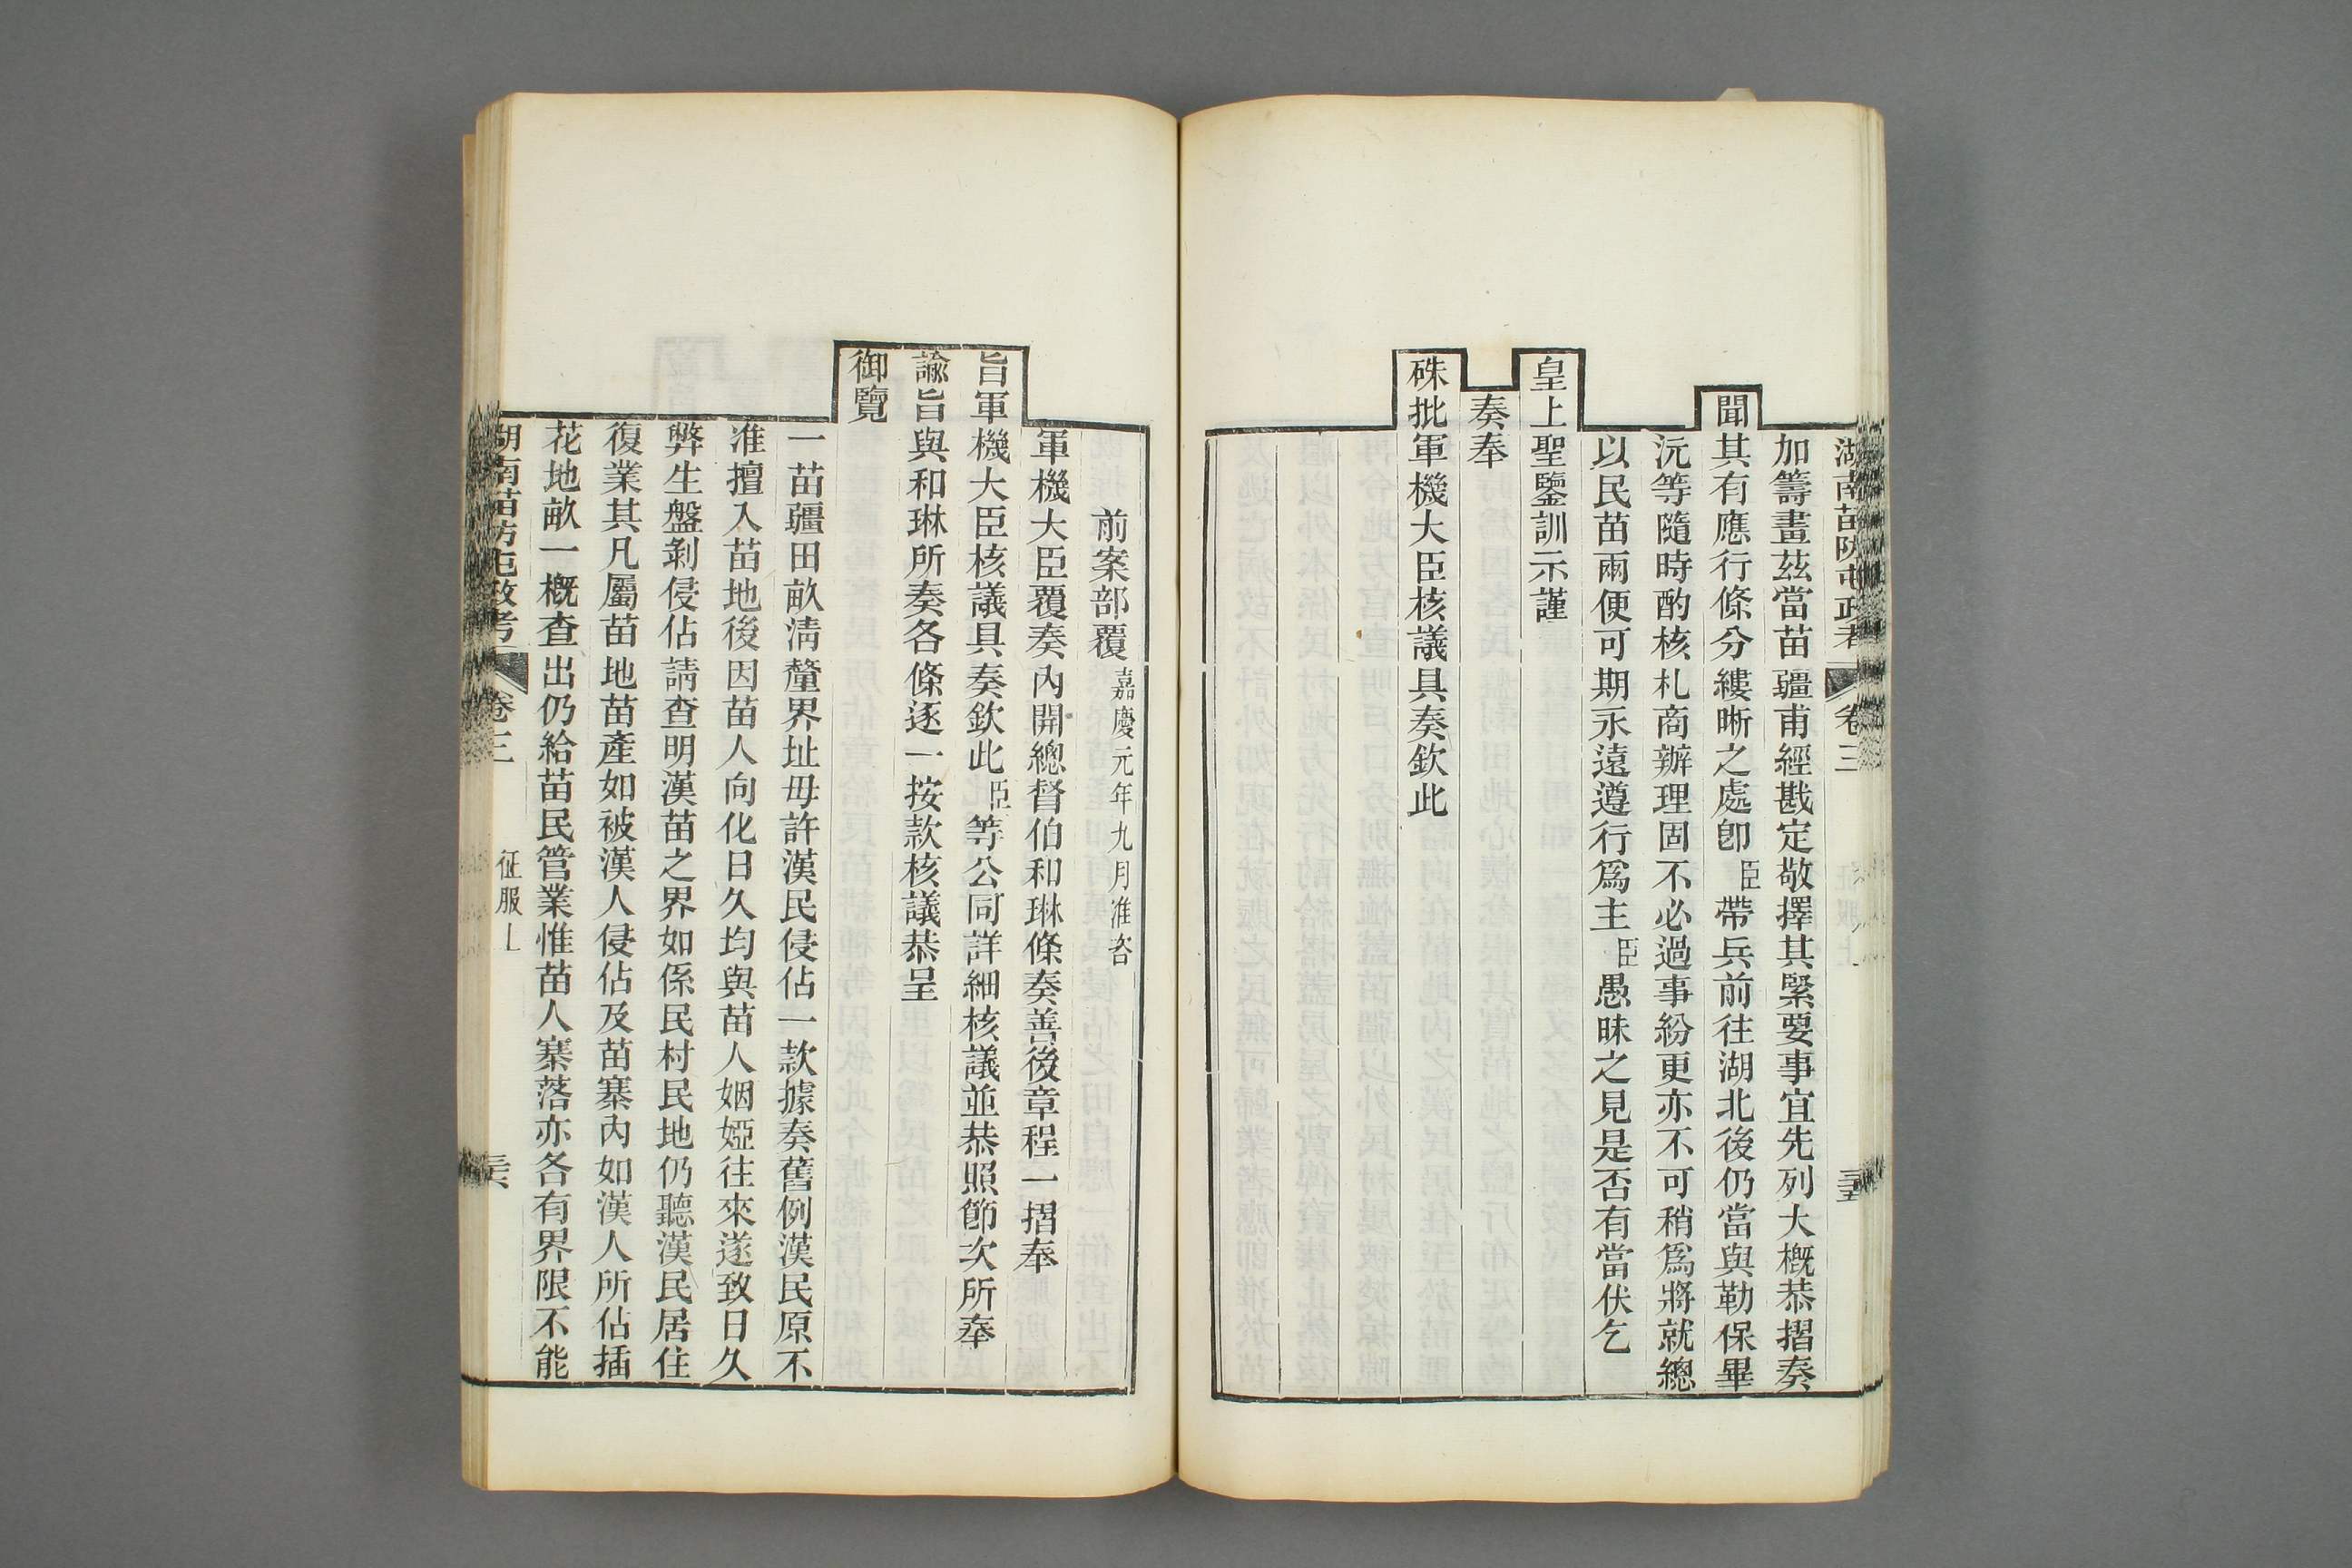 湖南苗防屯政考 卷三
加籌畫茲當苗疆甫經戡定敬擇其緊要事宜先列大概恭摺奏
聞其有應行條分縷晰之處卽臣帶兵前往湖北後仍當與勒保畢
沅等隨時酌核札商辦理固不必過事紛更亦不可稍爲將就總
以民苗兩便可期永遠遵行爲主臣愚昧之見是否有當伏乞
皇上聖鑒訓示謹
奏奉
硃批軍機大臣核議具奏欽此
前案部覆嘉慶元年九月准咨
軍機大臣覆奏內開總督伯和琳條奏善後章程一摺奉
旨軍機大臣核議具奏欽此臣等公同詳細核議並恭照節次所奉
諭旨與和琳所奏各條逐一按款核議恭呈
御覽
一苗疆田畝清釐界址毋許漢民侵佔一款據奏舊例漢民原不
准擅入苗地後因苗人向化日久均與苗人姻婭往來遂致日久
弊生盤剝侵佔請查明漢苗之界如係民村民地仍聽漢民居住
復業其凡屬苗地苗產如被漢人侵佔及苗寨內如漢人所佔插
花地畝一概查出仍給苗民管業惟苗人寨落亦各有界限不能
湖南苗防屯政考 卷三 征服上